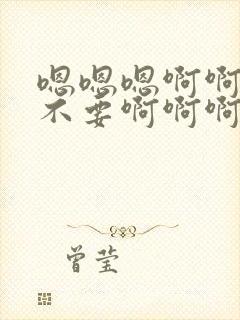 嗯嗯嗯啊啊
不要啊啊啊
曾莹